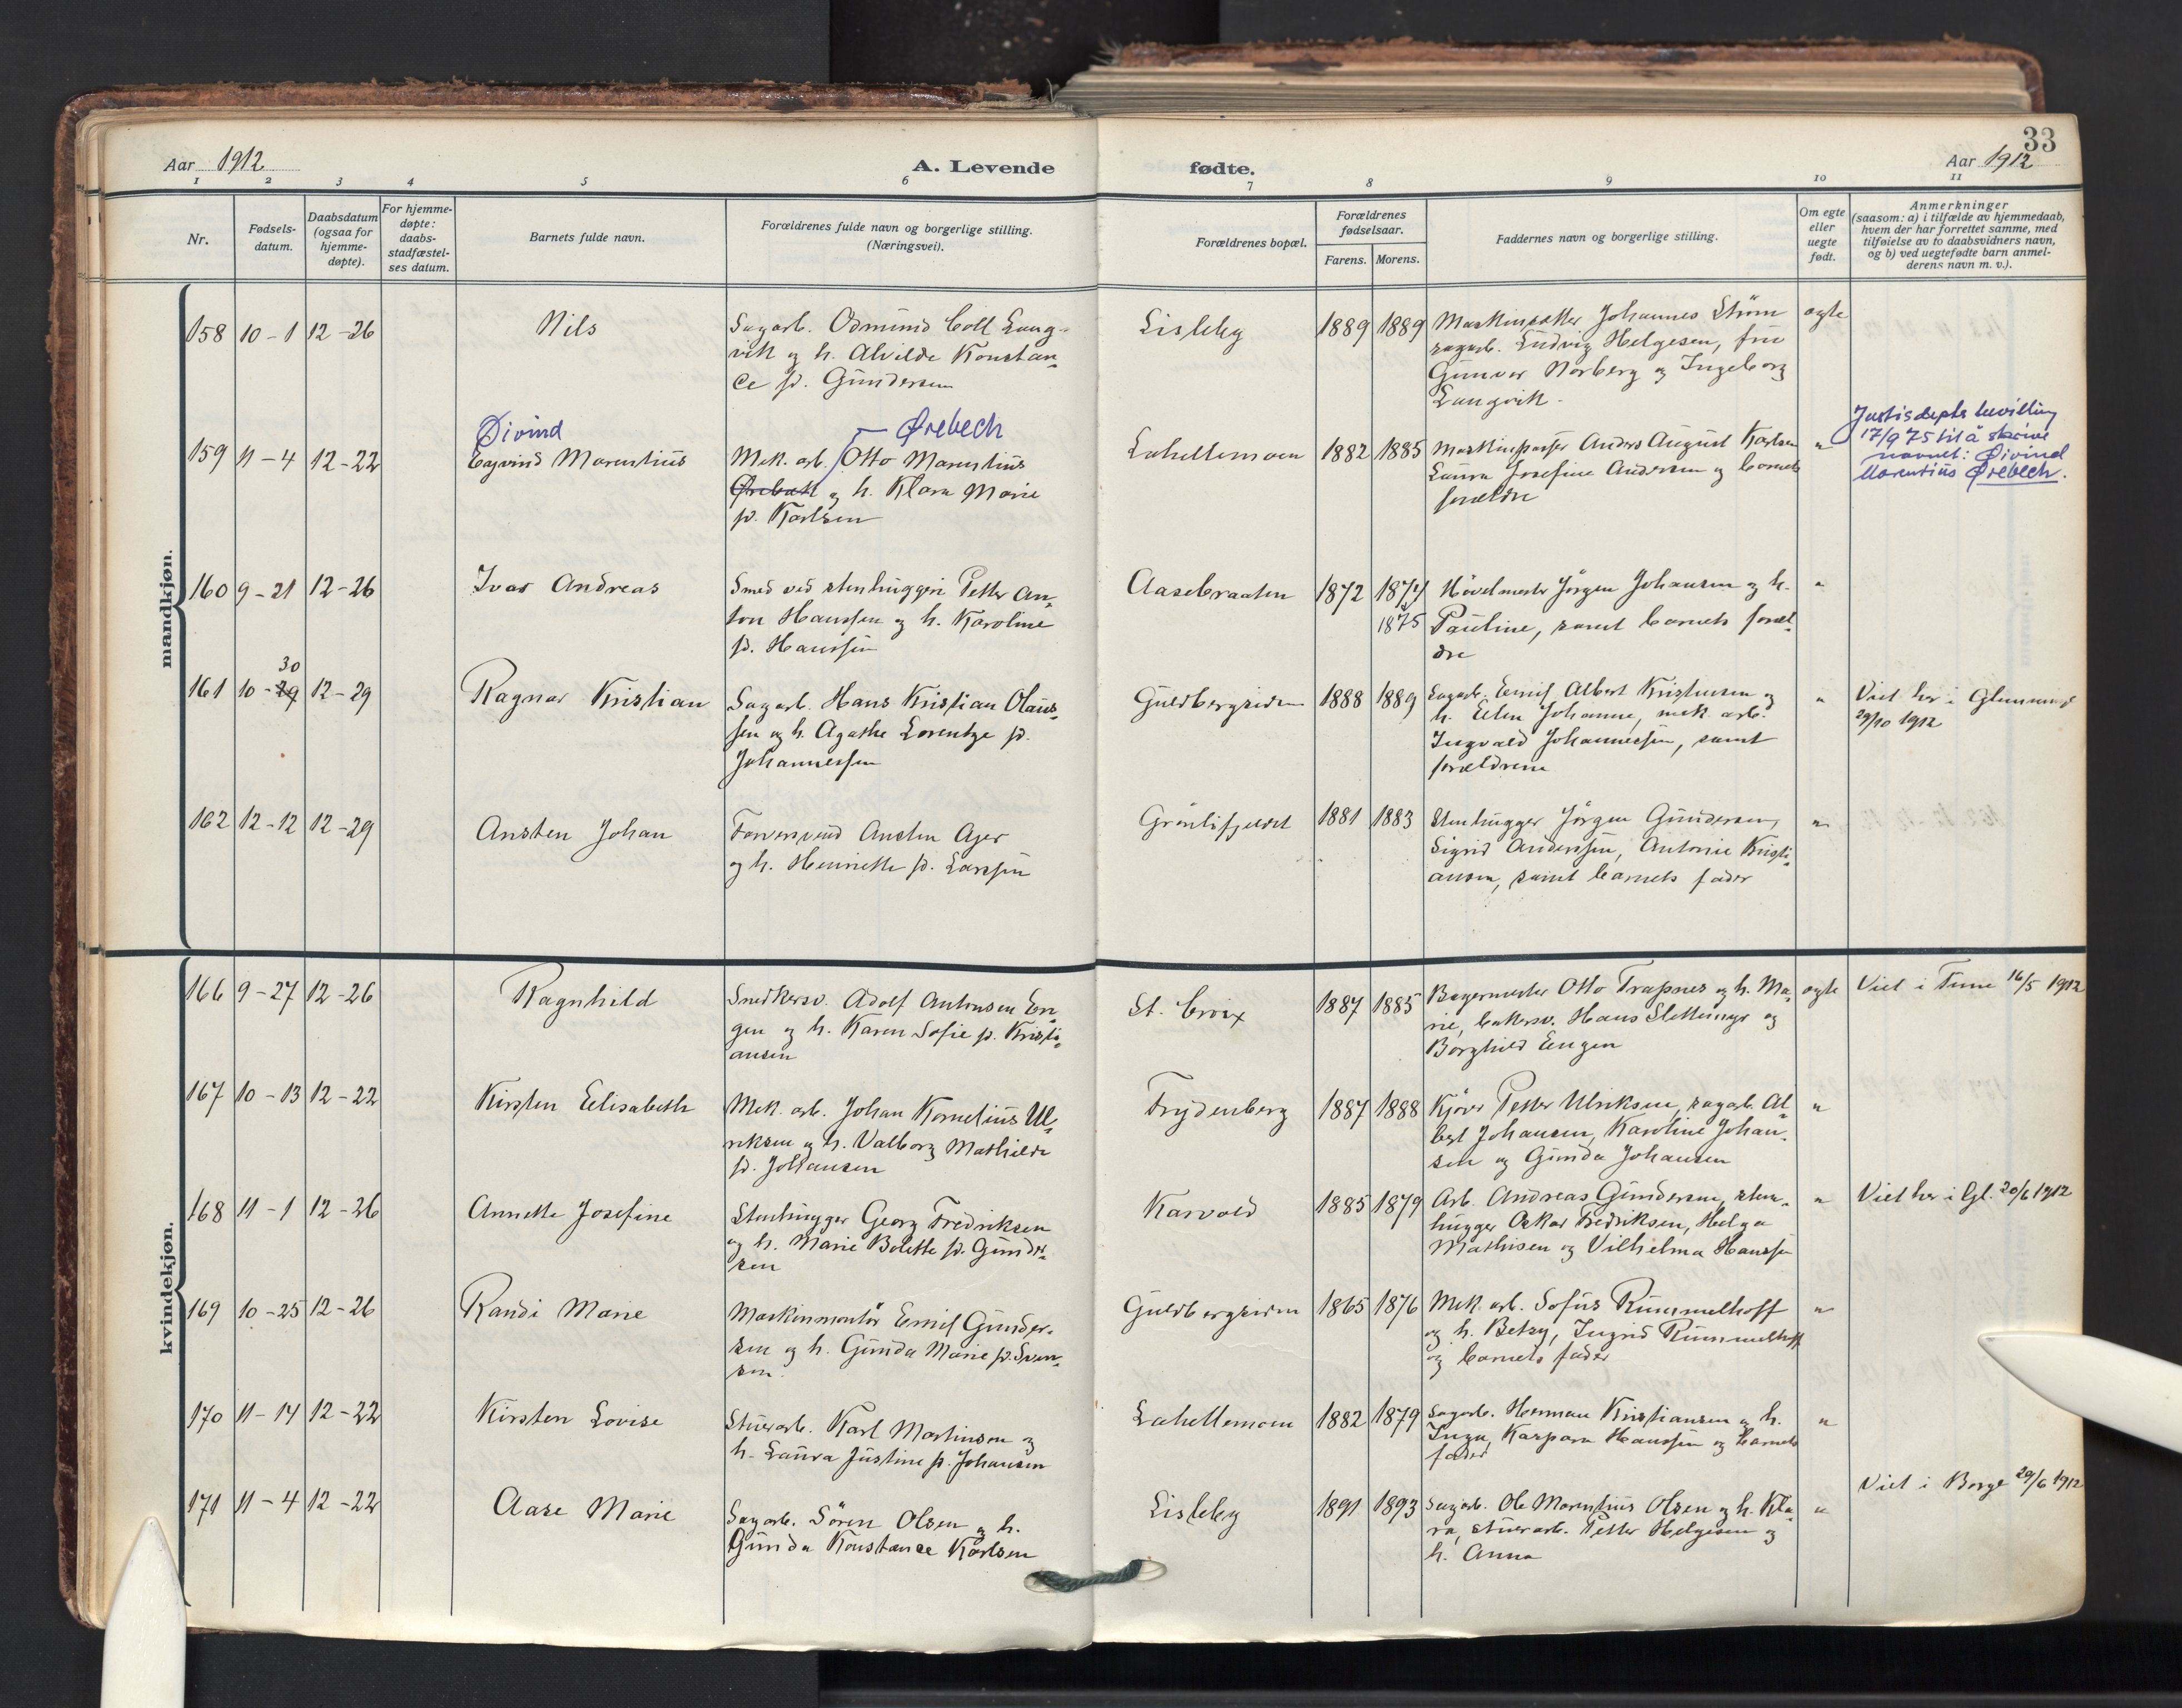 33
Aar 1912
A. Levende
fødte.
Aar 1912
1 2 3 4 5 6 7 8 9 10 11
Nr.
Fødsels-
datum.
Daabsdatum
(ogsaa for
hjemme-
døpte).
For hjemme-
døpte:
daabs-
stadfæstel-
ses datum.
Barnets fulde navn.
Forældrenes fulde navn og borgerlige stilling.
(Næringsvei).
Forældrenes bopæl.
Forældrenes
fødselsaar.
Farens. Morens.
Faddernes navn og borgerlige stilling.
Om egte
eller
uegte
født.
Anmerkninger
(saasom: a) i tilfælde av hjemmedaab,
hvem der har forrettet samme, med
tilføielse av to daabsvidners navn,
og b) ved uegtefødte barn anmel-
derens navn m. v.).
mandkjøn.
158 10-1 12-26
Nils
Sagarb. Odmund Coll Lang-
vik og h. Alvilde Konstan-
ce f. Gundersen
Lisleby
1889 1889
Johannes Strøm
sagarb. Ludvig Helgesen, fru
Gunvor Norberg og Ingeborg
Langvik.
egte
159 11-4 12-22
Øivind
Eyvind Marentius
Ørebech
Mek. arb. Otto Marentius
og h. Klara Marie
f. Karlsen
Lahellemoen
1882 1885
Maskinpasser Anders August Karlsen
Laura Josefine Andersen og barnets
forældre
"
Justisdepts bevilling
17/9 75 til å skrive
navnet: Øivind
Marentius Ørebech.
160 9-21 12-26
Ivar Andreas
Smed ved stenhuggeri Petter An-
ton Hanssen og h. Karoline
f. Hanssen
Aasebraaten
1872 1874
1875
Høvelmester Jørgen Johansen og h.
Pauline, samt barnets foræl-
dre
"
161 10-29 30 12-29
Ragnar Kristian
Sagarb. Hans Kristian Olaus-
sen og h. Agathe Lorentze f.
Johannessen
Guldbergsiden
1888 1889
Sagarb. Emil Albert Kristensen og
h. Ellen Johanne, mek. arb.
Ingvald Johannessen, samt
forældrene
"
Viet her i Glemminge
29/10 1912
162 12-12 12-29
Ansten Johan
Farversvend Ansten Ager
og h. Henriette f. Larssen
Grønlifjeldet
1881 1883
Stenhugger Jørgen Gundersen,
Sigrid Anderssen, Antonie Kristi-
ansen, samt barnets fader
"
kvindekjøn.
166 9-27 12-26
Ragnhild
Snedkersv. Adolf Antonsen En-
gen og h. Karen Sofie f. Kristi-
ansen
St. Croix
1887 1885
Bagermester Otto Trapnes og h. Ma-
rie, bakersv. Hans Slettemyr og
Borghild Engen
egte
Viet i Tune 16/5 1912
167 10-13 12-22
Kirsten Elisabeth
Mek. arb. Johan Kornelius Ul-
riksen og h. Valborg Mathilde
f. Johansen
Frydenberg
1887 1888
Kjører Petter Ulriksen, sagarb. Al-
bert Johansen, Karoline Johan-
sen og Gunda Johansen
"
168 11-1 12-26
Annette Josefine
Stenhugger Georg Fredriksen
og h. Marie Bolette f. Gunder-
sen
Karvold
1885 1879
Arb. Andreas Gundersen, sten-
hugger Oskar Fredriksen, Helga
Mathisen og Vilhelma Hanssen
"
Viet her i Gl. 20/6 1912
169 10-25 12-26
Randi Marie
Maskinmontør Emil Gunder-
sen og h. Gunda Marie f. Sven-
sen.
Guldbergsiden
1865 1876
Mek. arb. Sofus Rummelhoff
og h. Betzy, Ingrid Rummelhoff
og barnets fader
"
170 11-14 12-22
Kirsten Lovise
Stuerarb. Karl Martinsen og
h. Laura Justine f. Johansen
Lahellemoen
1882 1879
Sagarb. Herman Kristiansen og h.
Inga, Kaspara Hanssen og barnets
fader
"
171 11-4 12-22
Aase Marie
Sagarb. Søren Olsen og h.
Gunda Konstanse Karlsen
Lisleby
1891 1893
Sagarb. Ole Marentius Olsen og h. Kla-
ra, stuerarb. Petter Helgesen og
h. Anna
"
Viet i Borge 29/6 1912